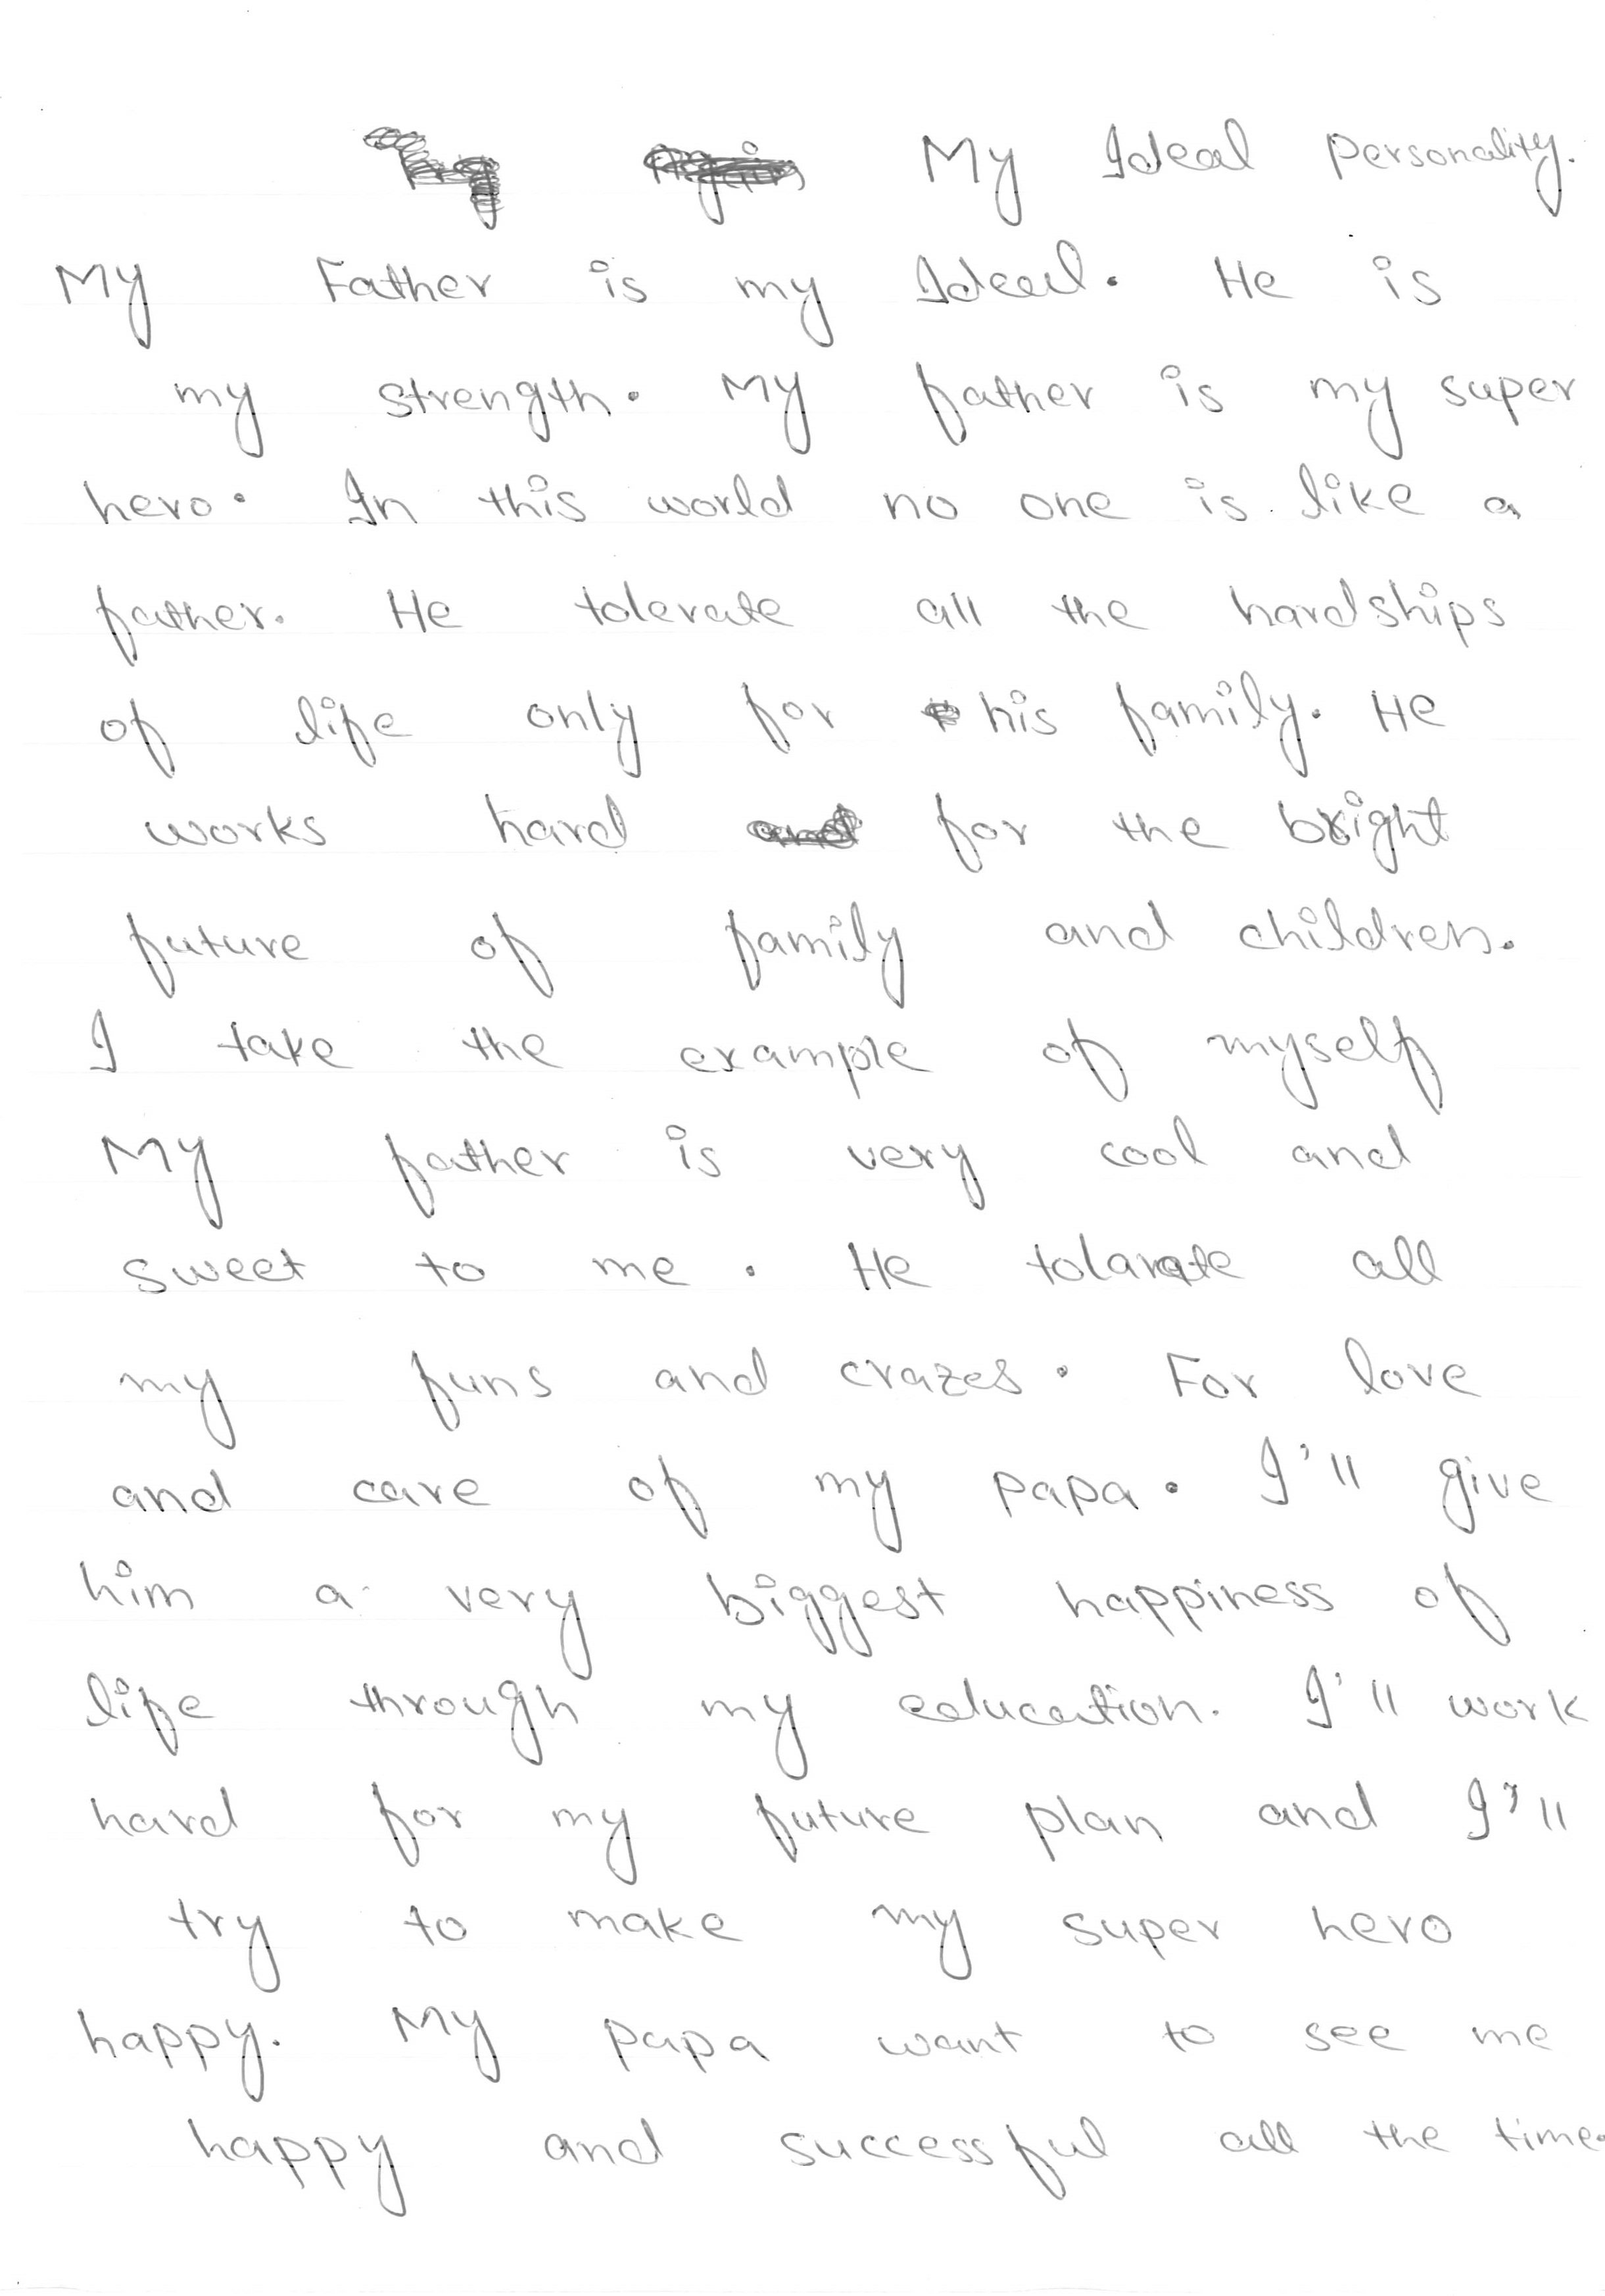 My Ideal Personality.
My Father is my Ideal. He is
my strength. My father is my super
hero. In this world no one is like a
father. He tolerate all the hardships
of life only for his family. He
works hard for the bright
future of family and children.
I take the example of myself
My father is very cool and
sweet to me. He tolarate all
my funs and crazes. For love
and care of my papa. I'll give
him a very biggest happiness of
life through my education. I'll work
hard for my future plan and I'll
try to make my super hero
happy. My papa want to see me
happy and successful all the time.